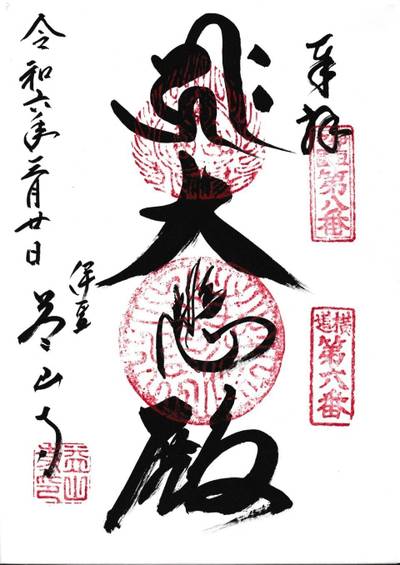 奉拝
第八番
横道第六番
大悲殿
令和六年三月廿日
伊豆
益山寺